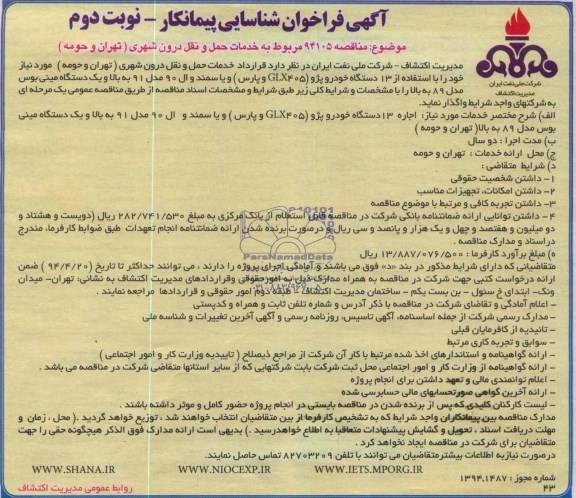 آگهی فراخوان شناسایی پیمانکار – نوبت دوم
موضوع: مناقصه ۹۴۱۰۵ مربوط به خدمات حمل و نقل درون شهری (تهران و حومه)
شرکت ملی نفت ایران
مدیریت اکتشاف
مدیریت اکتشاف – شرکت ملی نفت ایران در نظر دارد قرارداد خدمات حمل و نقل درون شهری (تهران و حومه) مورد نیاز
خود را با استفاده از ۱۳ دستگاه خودرو پژو (GLX۴۰۵ و پارس) و یا سمند و ال ۹۰ مدل ۹۱ به بالا و یک دستگاه مینی بوس
مدل ۸۹ به بالا را با مشخصات و شرایط کلی زیر طبق شرایط و مشخصات اسناد مناقصه از طریق مناقصه عمومی یک مرحله ای
به شرکتهای واجد شرایط واگذار نماید.
الف) شرح مختصر خدمات مورد نیاز: اجاره ۱۳ دستگاه خودرو پژو (GLX۴۰۵ و پارس) و یا سمند و ال ۹۰ مدل ۹۱ به بالا و یک دستگاه مینی
بوس مدل ۸۹ به بالا (تهران و حومه)
ب) مدت اجرا: دو سال
ج) محل ارائه خدمات: تهران و حومه
د) شرایط متقاضی:
۱- داشتن شخصیت حقوقی
۲- داشتن امکانات، تجهیزات مناسب
۳- داشتن تجربه کافی و مرتبط با موضوع مناقصه
۴- داشتن توانایی ارائه ضمانتنامه بانکی شرکت در مناقصه قابل استعلام از بانک مرکزی به مبلغ ۲۸۲/۷۴۱/۵۳۰ ریال (دویست و هشتاد و
دو میلیون و هفتصد و چهل و یک هزار و پانصد و سی ریال) و درصورت برنده شدن ارائه ضمانتنامه انجام تعهدات طبق ضوابط کارفرما، مندرج
در اسناد و مدارک مناقصه.
ه) مبلغ برآورد کارفرما: ۱۳/۸۸۷/۰۷۶/۵۰۰ ریال
متقاضیانی که دارای شرایط مذکور در بند «د» فوق می باشند و آمادگی اجرای پروژه را دارند، می توانند حداکثر تا تاریخ (۹۴/۴/۲۰) ضمن
ارائه درخواست کتبی جهت شرکت در مناقصه به همراه مدارک ذیل به امور حقوقی وقراردادهای مدیریت اکتشاف به نشانی: تهران- میدان
ونک- ابتدای خ سئول - بن بست یکم - ساختمان مدیریت اکتشاف - طبقه دوم امور حقوقی و قراردادها مراجعه نمایند.
- اعلام آمادگی و تقاضای شرکت در مناقصه با ذکر آدرس و شماره تلفن ثابت و همراه و کدپستی
- مدارک رسمی شرکت از جمله اساسنامه، آگهی تاسیس، روزنامه رسمی و آگهی آخرین تغییرات و شناسه ملی
- تائیدیه از کارفرمایان قبلی
- سوابق و تجربه کاری مرتبط
- ارائه گواهینامه و استانداردهای اخذ شده مرتبط با کار آن شرکت از مراجع ذیصلاح (تاییدیه وزارت کار و امور اجتماعی)
- ارائه گواهینامه از وزارت کار و امور اجتماعی محل ثبت شرکت بابت شرکتهایی که از سایر استانها متقاضی شرکت در مناقصه می باشند.
- اعلام توانمندی مالی و تعهد داشتن برای انجام پروژه
- ارائه آخرین گواهی صورتحسابهای مالی حسابرسی شده
- لیست کارکنان کلیدی که پس از برنده شدن در مناقصه بایستی در انجام پروژه حضور کامل و موثر داشته باشند.
مدارک مناقصه بین پیمانکاران واجد شرایط که به تشخیص کارفرما از بین متقاضیان انتخاب خواهند شد، توزیع خواهد گردید. (محل، زمان و
مهلت دریافت اسناد، تحویل و گشایش پیشنهادات متعاقبا به اطلاع خواهدرسید.) بدیهی است ارائه مدارک فوق الذکر هیچگونه حقی را جهت
متقاضیان برای شرکت در مناقصه ایجاد نخواهد کرد.
درصورت نیازبه اطلاعات بیشترمتقاضیان می توانند با تلفن ۸۲۷۰۳۲۰۹ تماس حاصل نمایند.
WWW.SHANA.IR WWW.NIOCEXP.IR WWW.IETS.MPORG.IR
شماره مجوز: ۱۳۹۴.۱۴۸۷
۴۳
روابط عمومی مدیریت اکتشاف
ParsNamadData